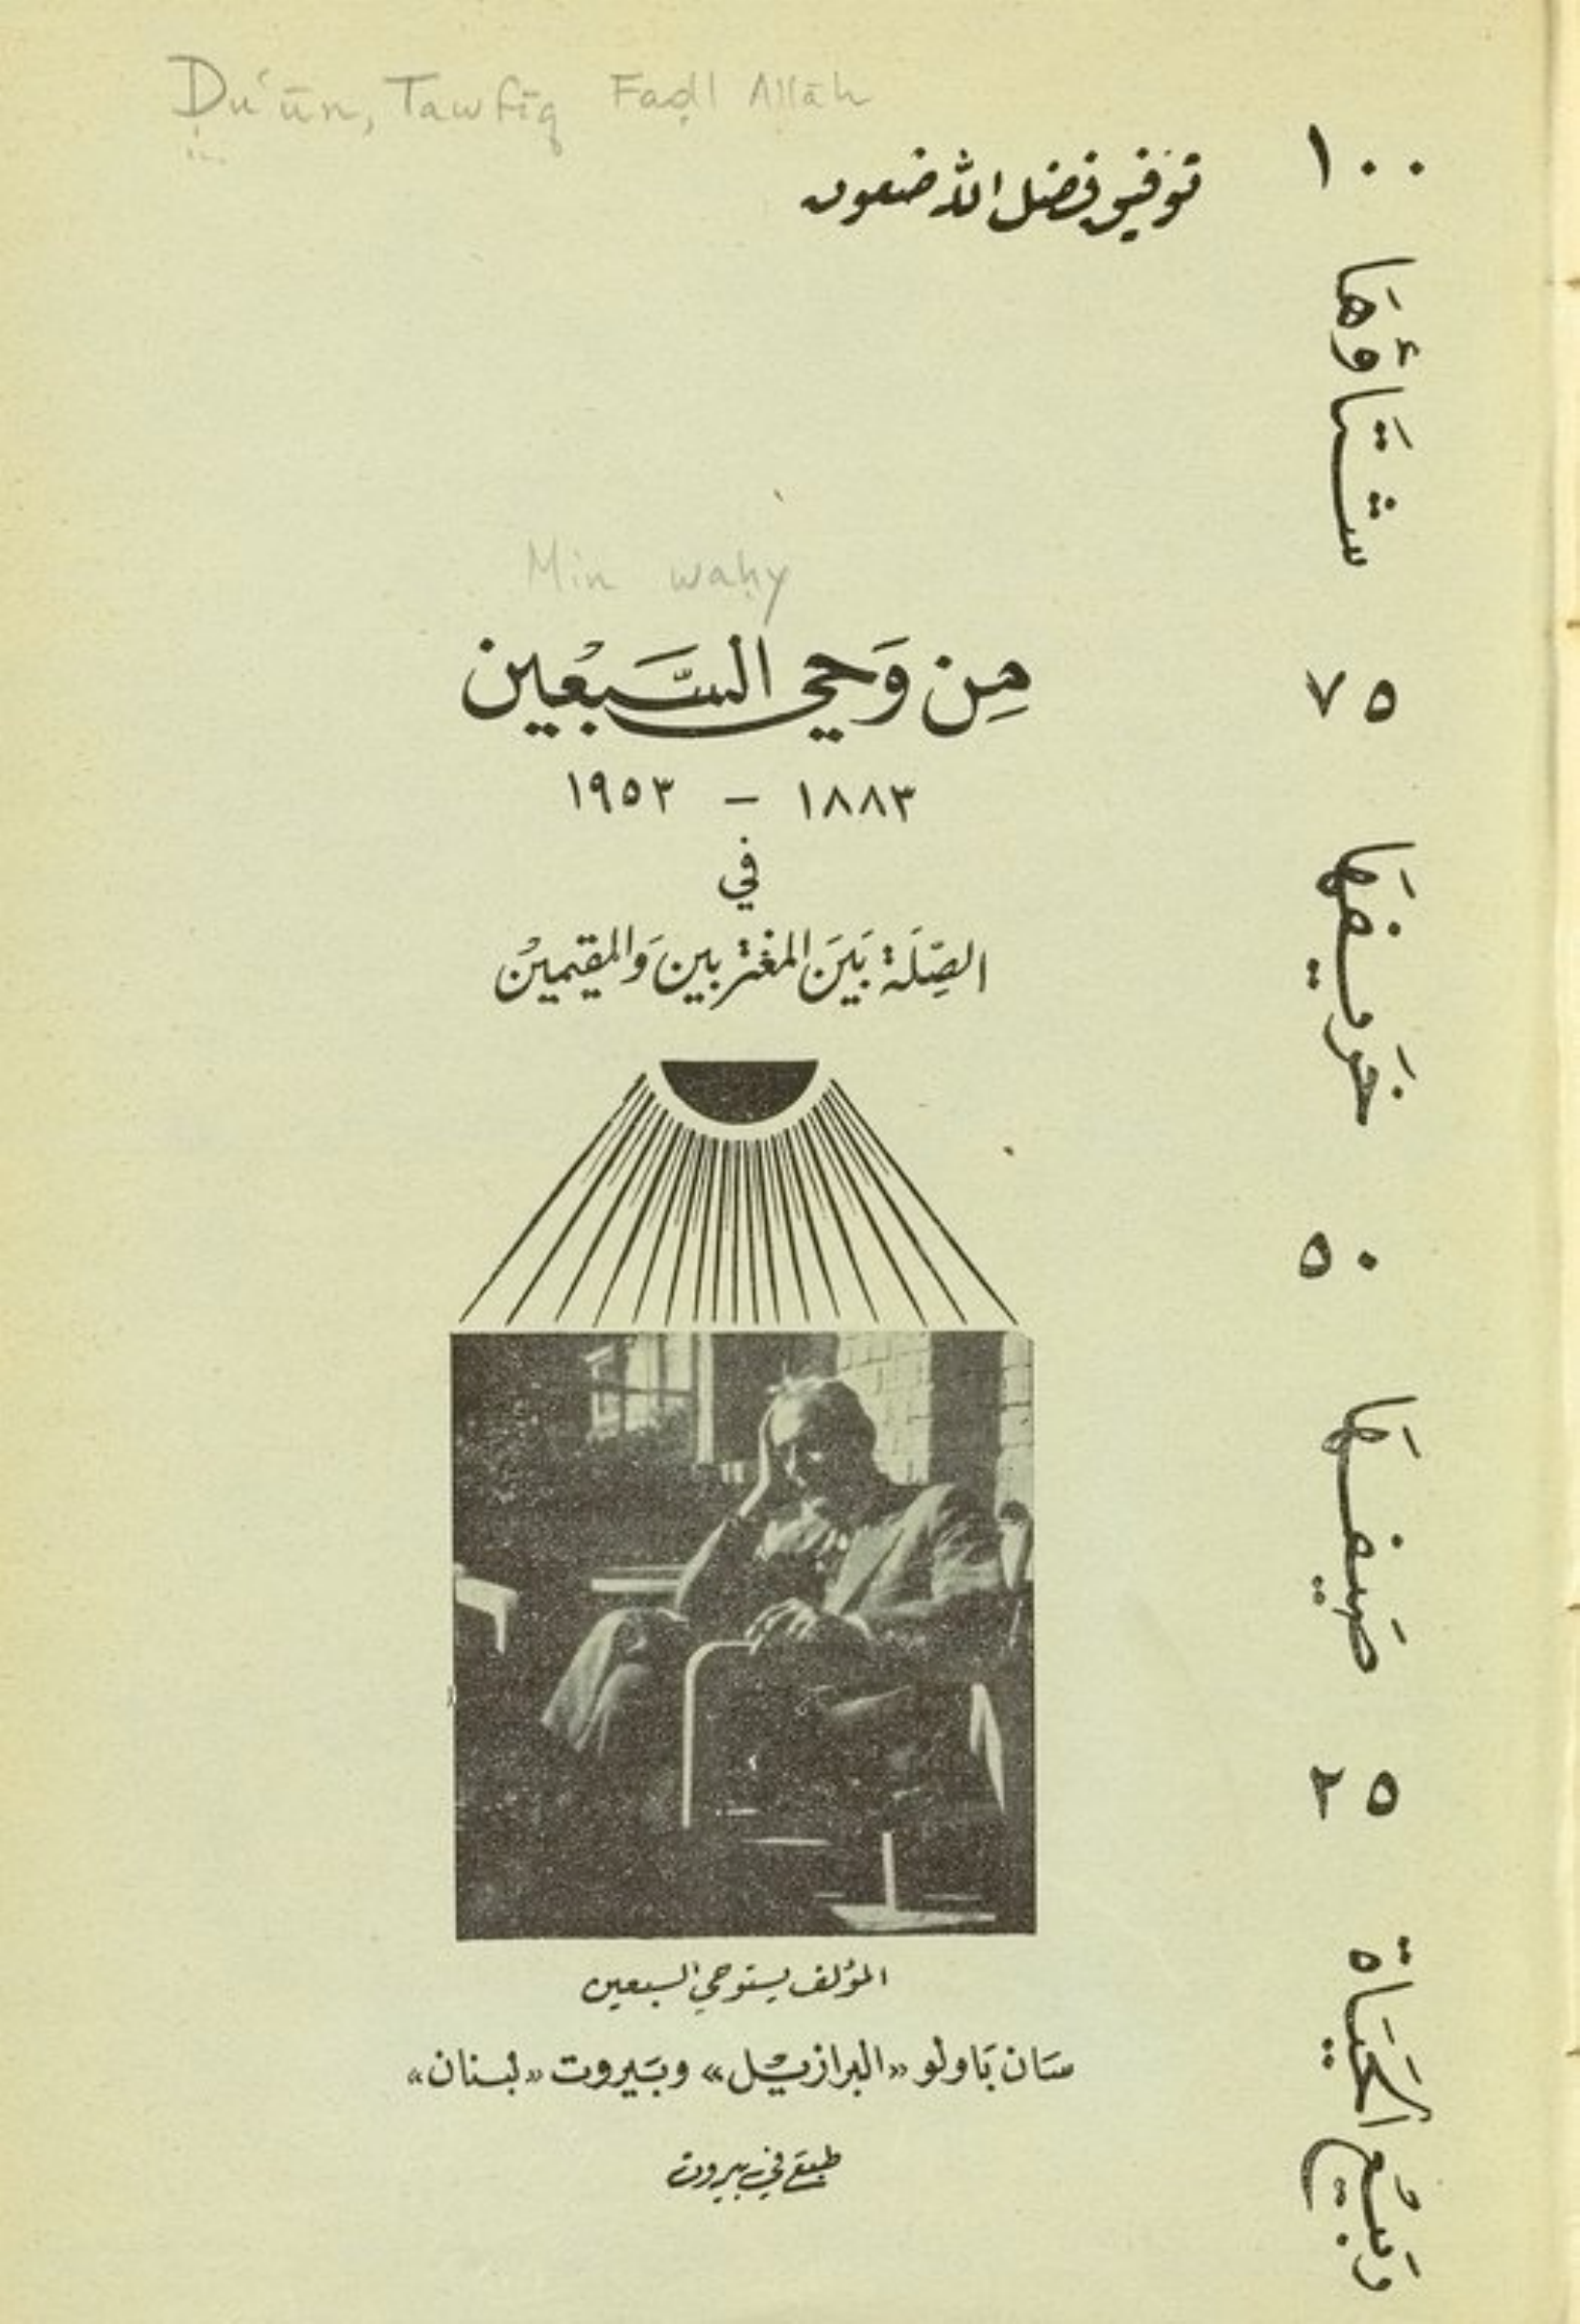 Ḍu'ūn, Tawfīq Faḍl Allāh
توفيق فضل الله ضعون
Min waḥy
مِن وَحي السَّبعْين
١٨٨٣ – ١٩٥٣
في
الصِّلَة بَينَ المغتربين وَالمقيمينْ
المؤلف يستوحي السبعين
سَان بَاولو «البرازيْل» وبَيروت «لبنان»
طبع في بيروت
١٠٠
شتَاؤهَا
٧٥
خَريفهَا
٥٠
صَيفهَا
٢٥
رَبيْع الحَيَاة